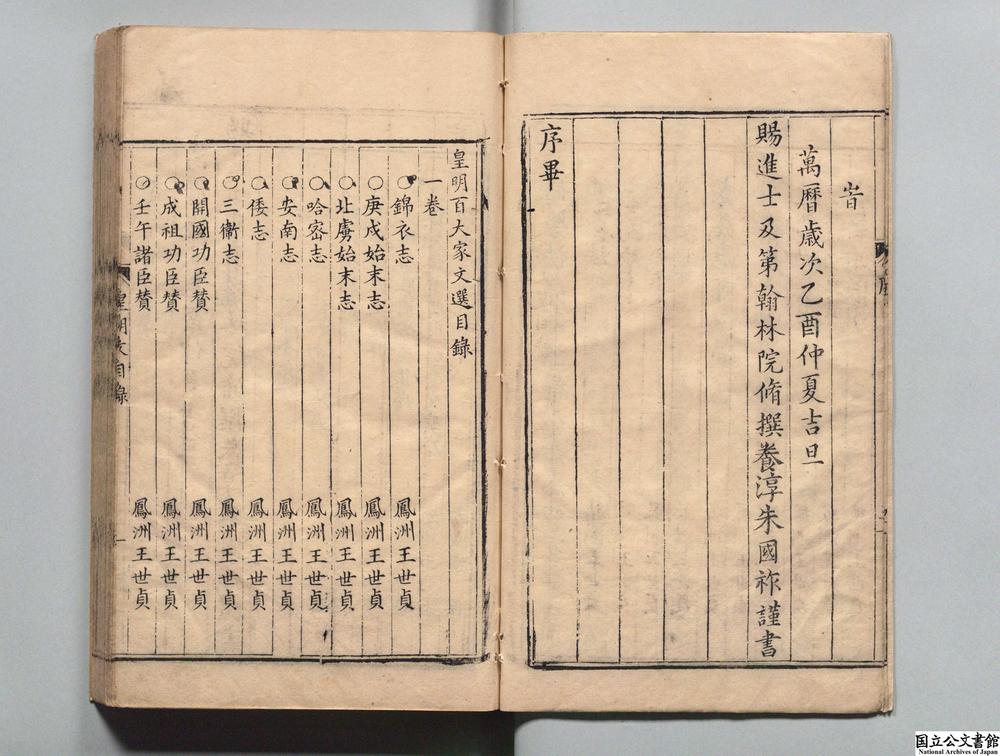 旹
萬曆歲次乙酉仲夏吉旦
賜進士及第翰林院脩撰養淳朱國祚謹書
序畢
皇明百大家文選目錄
一卷
○錦衣志 鳳洲王世貞
○庚戌始末志 鳳洲王世貞
○北虜始末志 鳳洲王世貞
○哈密志 鳳洲王世貞
○安南志 鳳洲王世貞
○倭志 鳳洲王世貞
○三衞志 鳳洲王世貞
○開國功臣贊 鳳洲王世貞
○成祖功臣贊 鳳洲王世貞
○壬午諸臣贊 鳳洲王世貞
皇明文目錄
一
国立公文書館
National Archives of Japan